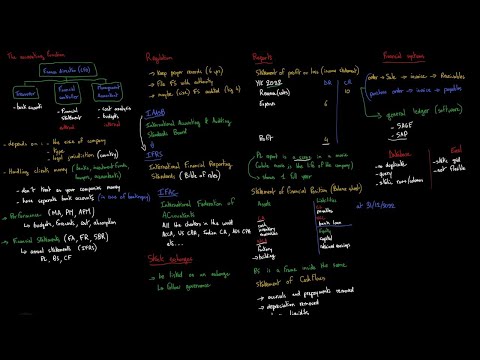 The accounting function
Finance director (CFO)
Treasurer
Financial controller
Management accountant
- bank accounts
- Financial statements
- cost analysis
- budgets
external
internal
- depends on :- the size of company
- Type
- legal jurisdiction (country)
- Handling clients money (banks, investment funds, lawyers, accountants)
- don't treat as your companies money
- have separate bank accounts (in case of bankruptcy)
→ Performance (MA, PM, APM)
↳ budgets, forecasts, cost, absorption
→ Financial Statements (FA, FR, SBR)
↳ annual statements (IFRS)
PL, BS, CF
Regulation
→ Keep proper records (6 yrs)
→ File FS with authority
→ maybe: (have) FS audited (big 4)
IAASB
International Accounting & Auditing Standards Board
IFRS
International Financial Reporting Standards (Bible of rules)
IFAC
International Federation of Accountants
All the charters in the world
ACCA, US CPA, Indian CA, AUS CPA
etc...
Stock exchanges
→ be listed on an exchange
↳ follow governance
Reports
Statement of profit or loss (income statement)
YE 2022
DR
CR
Revenue (sales)
10
Expenses
6
Profit
4
PL report is a video in a movie
(whole movie is the life of the company)
→ shows a full year
Statement of Financial Position (Balance sheet)
Assets
Liabilities
at 31/12/2022
CA
cash
inventory
receivables
payables
bank loan
Equity
capital
retained earnings
NCA
Factory
→ building
BS is a frame inside the movie
Statement of Cashflows
→ accruals and prepayments removed
→ depreciation removed
liquidity
Financial systems
order → Sale → invoice → Receivables
purchase order → invoice → payables
→ general ledger (software)
- SAGE
- SAP
Database
- no duplicates
- query
- static rows/columns
Excel
- static grid
- not flexible